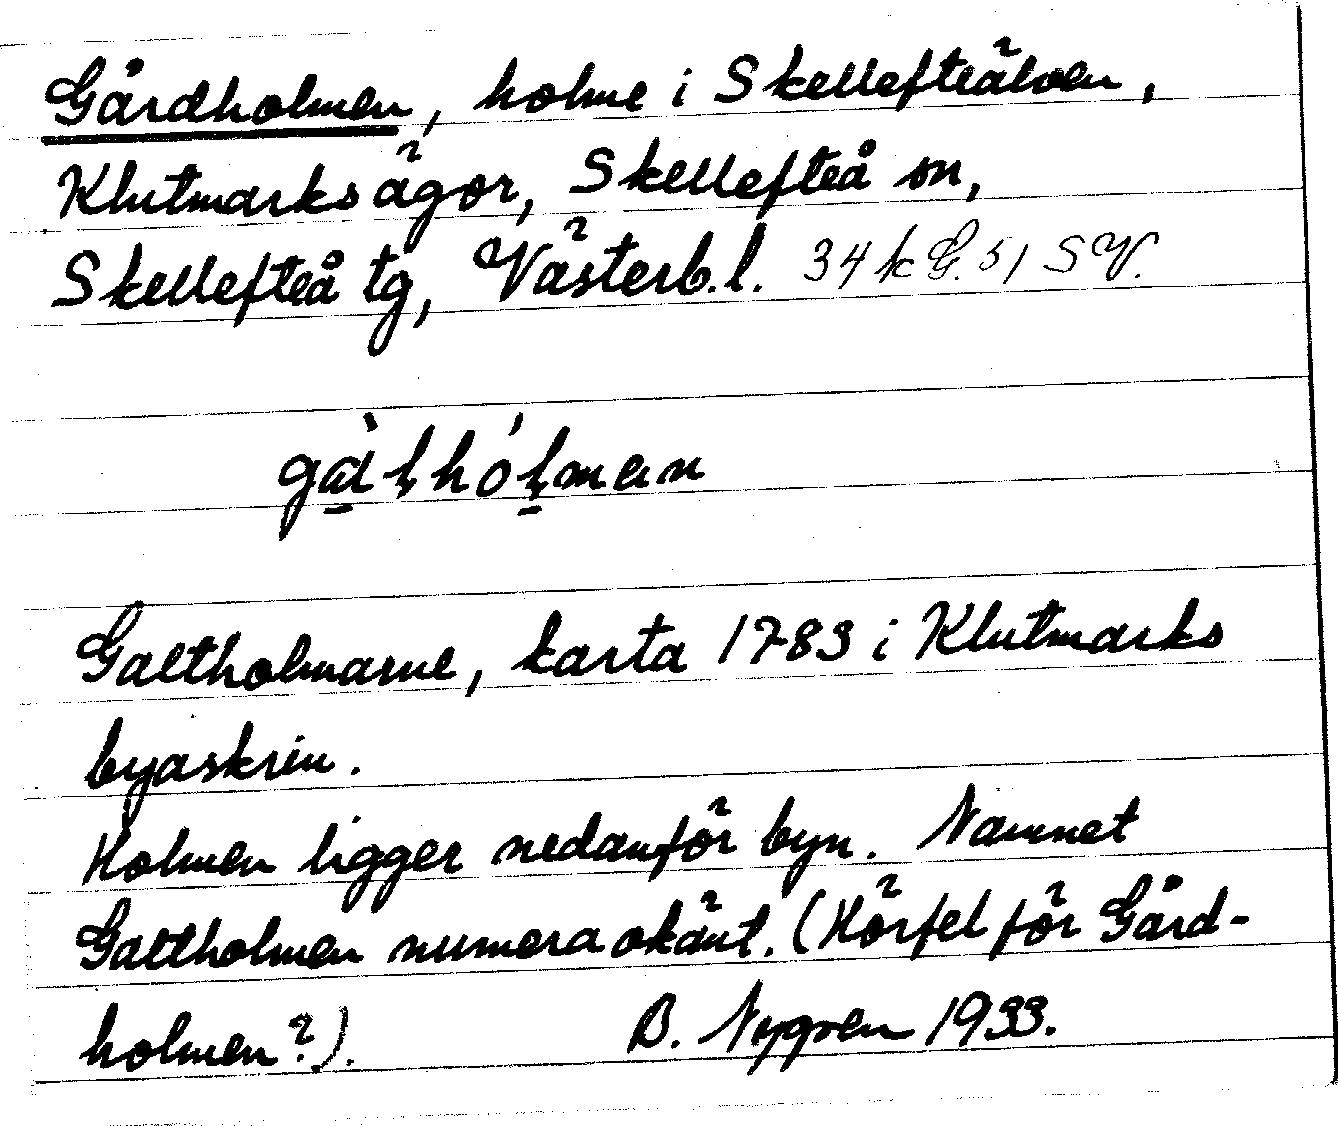 Gårdholmen, holme i Skellefteälven,
Klutmarks ägor, Skellefteå sn,
Skellefteå tg, Västerb. l. 34 k G. 51 SV.
Galtholmarne, karta 1783 i Klutmarks
byaskrin.
Holmen ligger nedanför byn. Namnet
Galtholmen numera okänt. (Hörfel för Gård-
holmen?).
B. Nygren 1933.